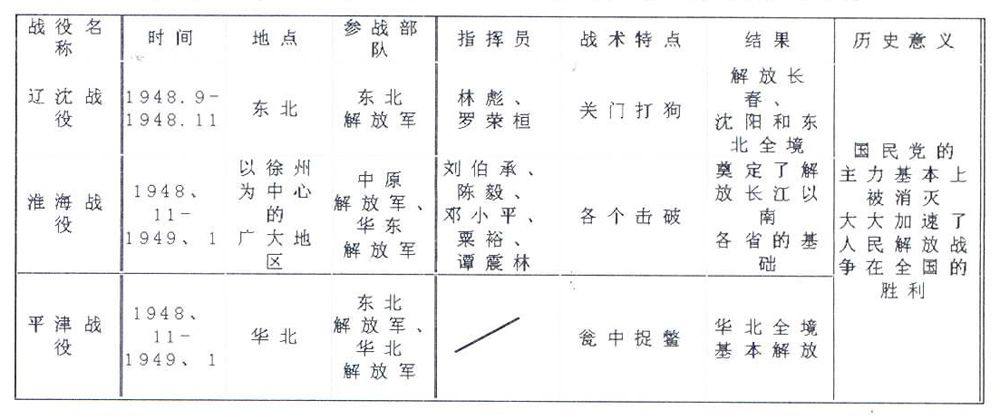 战役名称
时间
地点
参战部队
指挥员
战术特点
结果
历史意义
辽沈战役
1948.9-
1948.11
东北
东北
解放军
林彪、
罗荣桓
关门打狗
解放长
春、
沈阳和东
北全境
淮海战役
1948、
11-
1949、1
以徐州
为中心
的
广大地
区
中原
解放军、
华东
解放军
刘伯承、
陈毅、
邓小平、
粟裕、
谭震林
各个击破
奠定了解
放长江以
南
各省的基
础
平津战役
1948、
11-
1949、1
华北
东北
解放军、
华北
解放军
瓮中捉鳖
华北全境
基本解放
国民党的
主力基本上
被消灭
大大加速了
人民解放战
争在全国的
胜利